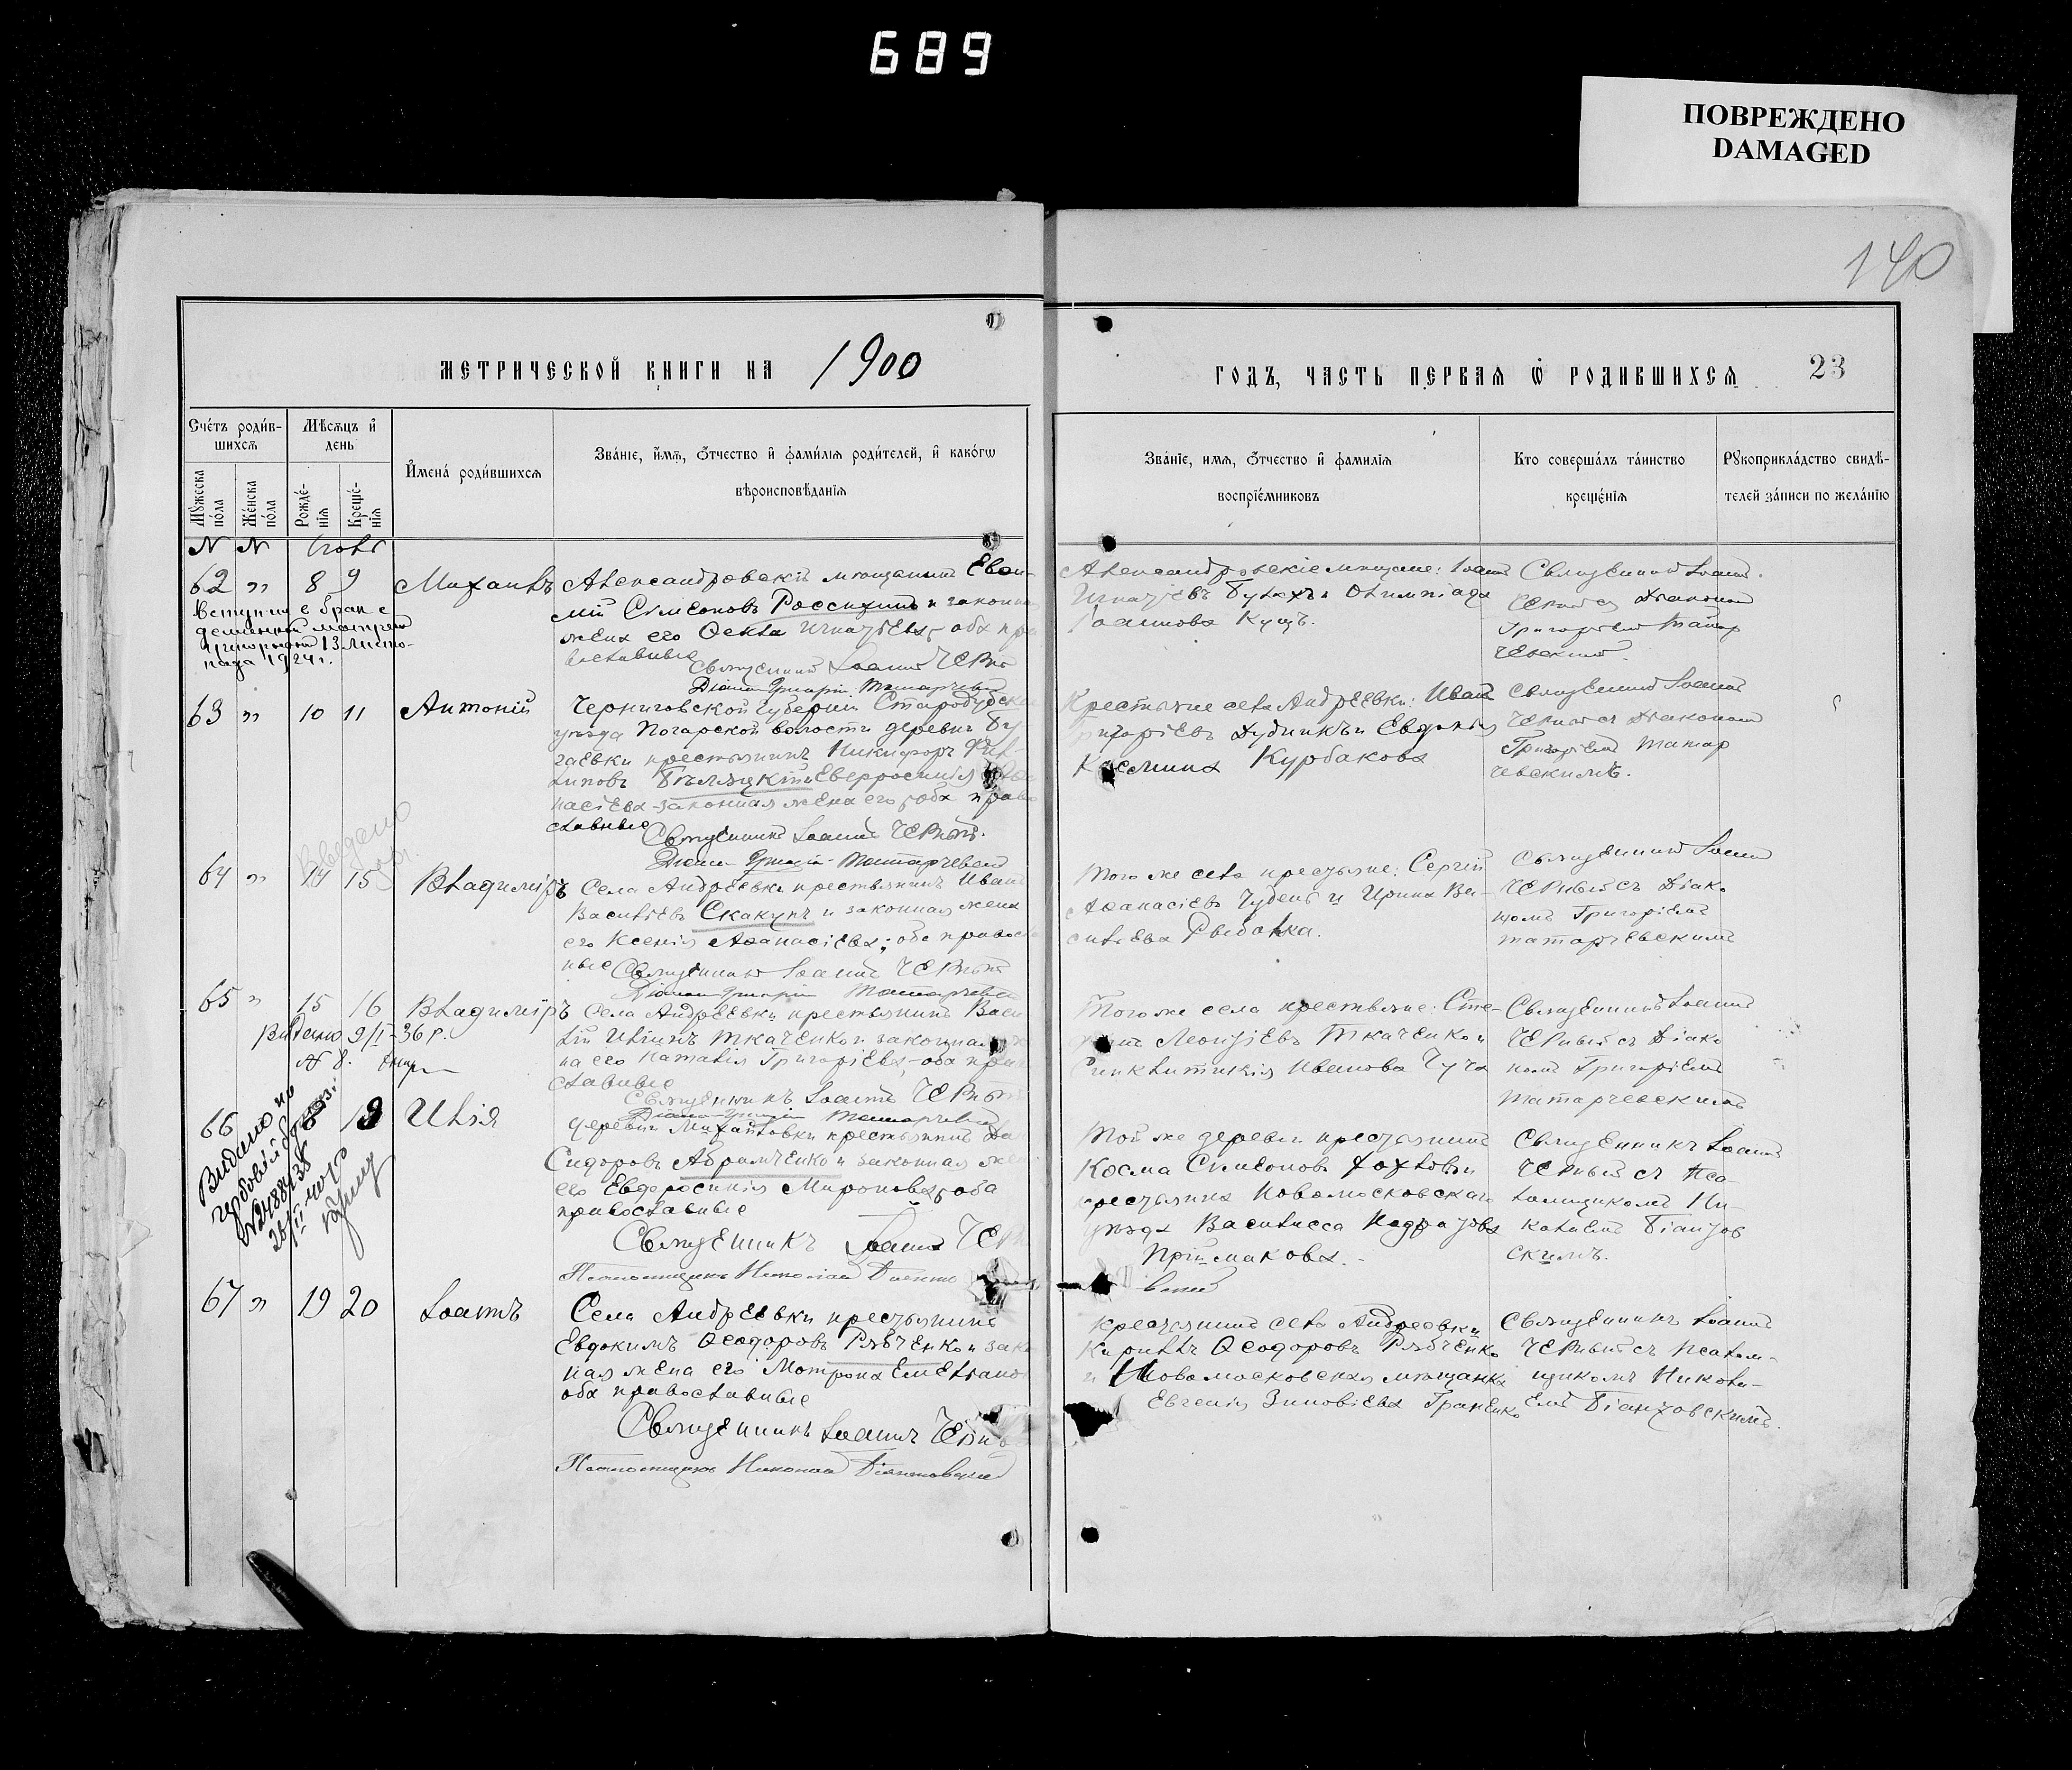 689
ПОВРЕЖДЕНО
DAMAGED
140
МЕТРИЧЕСКОЙ КНИГИ НА 1900
ГОДЪ, ЧАСТЬ ПЕРВАЯ Ѡ РОДИВШИХСЯ 23
Счетъ родив-
шихся
Мѣсяцъ и
день
Мужеска
пола
Женска
пола
Рожде-
нія
Креще-
нія
Имена родившихся
Званіе, имя, отчество и фамилія родителей, и какогѡ
вѣроисповѣданія
Званіе, имя, отчество и фамилія
воспріемниковъ
Кто совершалъ таинство
крещенія
Рукоприкладство свидѣ-
телей записи по желанію
N N
62 " 8 9 Михаилъ
Александровскій мѣщанинъ Евѳи-
мій Сѵмеоновъ Россихинъ и законна
жена его Ѳекла Игнатіева, оба пра
вославные
Священникъ Іоаннъ Черн
Александровскіе мѣщане: Іоаннъ
Іоаннова Куцъ.
Священникъ Іоаннъ
съ Діакономъ
Григоріемъ Татар
чевскимъ.
13 Листо-
пада 1924 г.
63 " 10 11 Антоній
Черниговской губерніи Стародубска
уѣзда Погарской волости деревни Бу
гаевки крестьянинъ Никифоръ Фил-
липовъ Бѣляцкій и Еверросинія
насіева законная жена его, оба право
славные
Священникъ Іоаннъ Черный.
Крестьяне села Андреевки: Иванъ
Григоріевъ Дудникъ и Евдокія
Космина Курбакова
Священникъ Іоаннъ
Черный съ Діакономъ
Григоріемъ Татар
чевскимъ.
64 " 14 15 Владиміръ
Села Андреевки крестьянинъ Иванъ
Василіевъ Скакунъ и законная жена
его Ксенія Аѳанасіева; оба правосл
ные
Священникъ Іоаннъ Черный
Того же села крестьяне: Сергій
Аѳанасіевъ Чубенъ и Ирина Ва-
силіева Рыбалка.
Священникъ Іоаннъ
Черный съ Діако
номъ Григоріемъ
Татарчевскимъ
65 " 15 16 Владиміръ
Видано 9/I-36 г.
N 8.
Села Андреевки крестьянинъ Васи
лій Иліинъ Ткаченко и законная
на его Наталія Григоріева, оба прав
славные
Священникъ Іоаннъ Черный
Того же села крестьяне: Сте-
Леонтіевъ Ткаченко и
Синклитикія Иванова Чуча
Священникъ Іоаннъ
Черный съ Діако
номъ Григоріемъ
Татарчевскимъ
66 Илія
деревни Михайловки крестьянинъ
Сидоровъ Абрамченко и законная жен
его Евфросинія Миронова, оба
православные
Священникъ Іоаннъ Чер
Псаломщикъ Николай
Той же деревни крестьянинъ
Косма Сѵмеоновъ Хохловъ и
крестьянка Новомосковскаго
уѣзда Василисса
Пріймакова.
Священникъ Іоаннъ
Черный съ Пса-
ломщикомъ Ни-
колаемъ Біанзов
скимъ.
67 " 19 20 Іоаннъ
Села Андреевки крестьянинъ
Евдокимъ Ѳеодоровъ Рябченко и зак
ная жена его Мотрона Емеліано
оба православные
Священникъ Іоаннъ Черн
Псаломщикъ Николай
Крестьянинъ села Андреевки
Кириллъ Ѳеодоровъ Рябченко
и Новомосковская мѣщанка
Евгенія Зиновіева Граненко
Священникъ Іоаннъ
Черный съ Псалом-
щикомъ Никола-
емъ Біанзовскимъ.